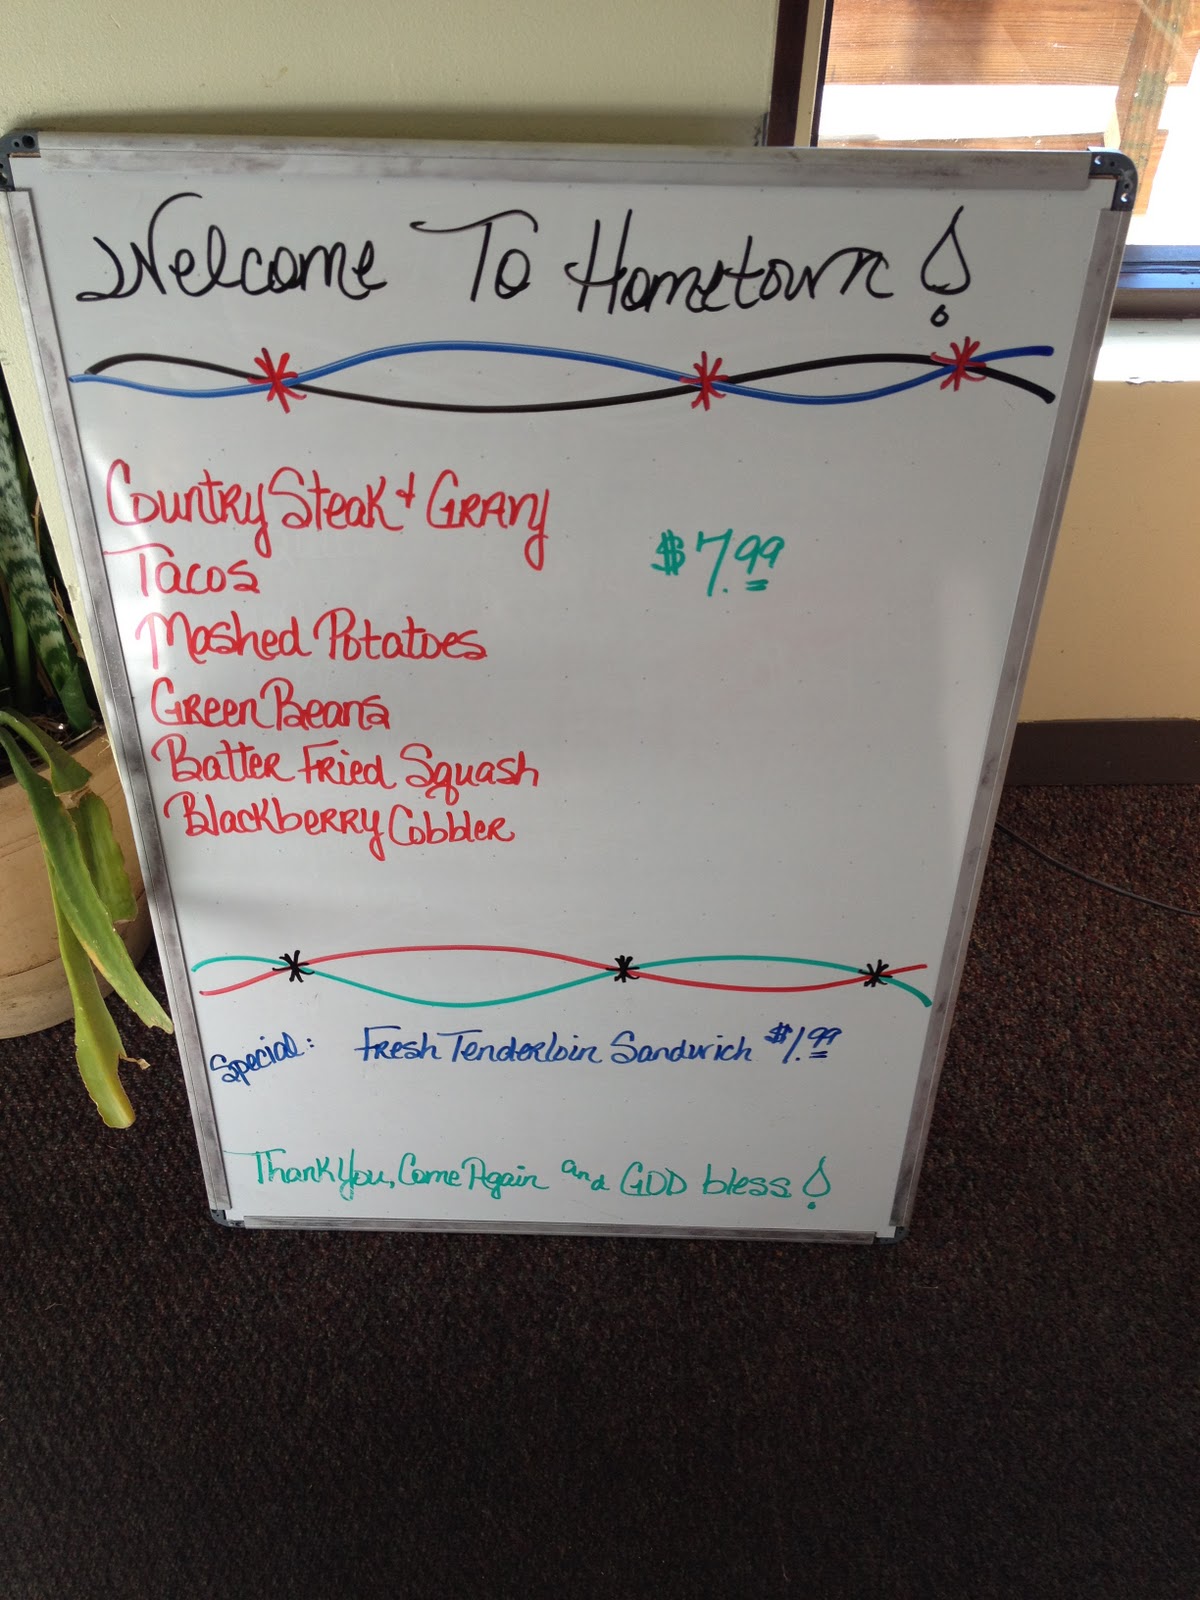 Welcome To Hometown!
Country Steak & Gravy
$7.99
Tacos
Mashed Potatoes
Green Beans
Batter Fried Squash
Blackberry Cobbler
Special: Fresh Tenderloin Sandwich $1.99
Thank You, Come Again and GOD bless!